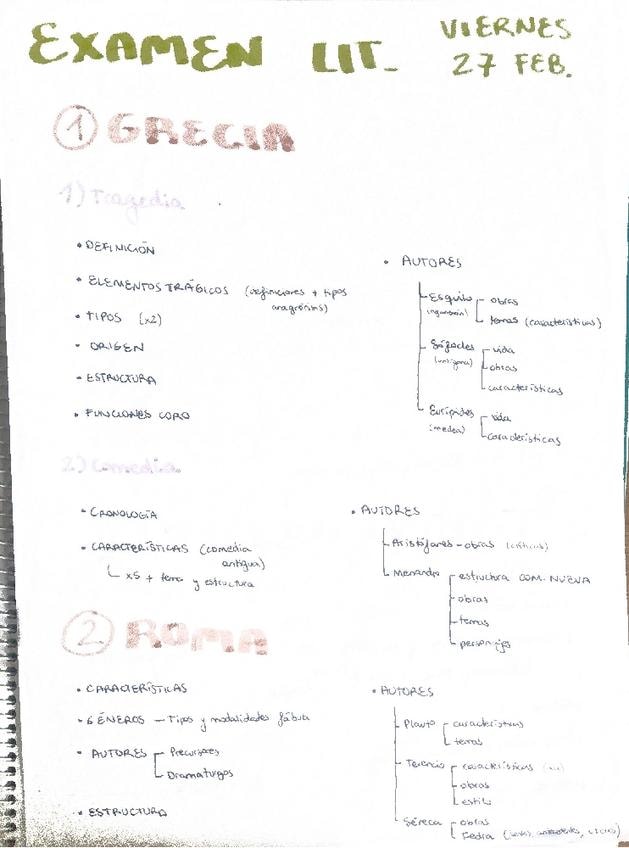 EXAMEN LIT.
VIERNES
27 FEB.
① GRECIA
1) Tragedia
• DEFINICIÓN
• ELEMENTOS TRÁGICOS (definiciones + tipos
anagnórisis)
• TIPOS (x2)
• ORIGEN
• ESTRUCTURA
• FUNCIONES CORO
• AUTORES
Esquilo
obras
temas (características)
Sófocles
(antígona)
vida
obras
características
Eurípides
(medea)
vida
características
2) Comedia
• CRONOLOGÍA
• CARACTERÍSTICAS (comedia
antigua)
x5 + tema y estructura
• AUTORES
Aristófanes - obras (críticas)
Menandro
estructura COM. NUEVA
obras
temas
personajes
② ROMA
• CARACTERÍSTICAS
• GÉNEROS — Tipos y modalidades fábula
• AUTORES
Precursores
Dramaturgos
• ESTRUCTURA
• AUTORES
Plauto
características
temas
Terencio
características
obras
estilo
Séneca
obras
Fedra